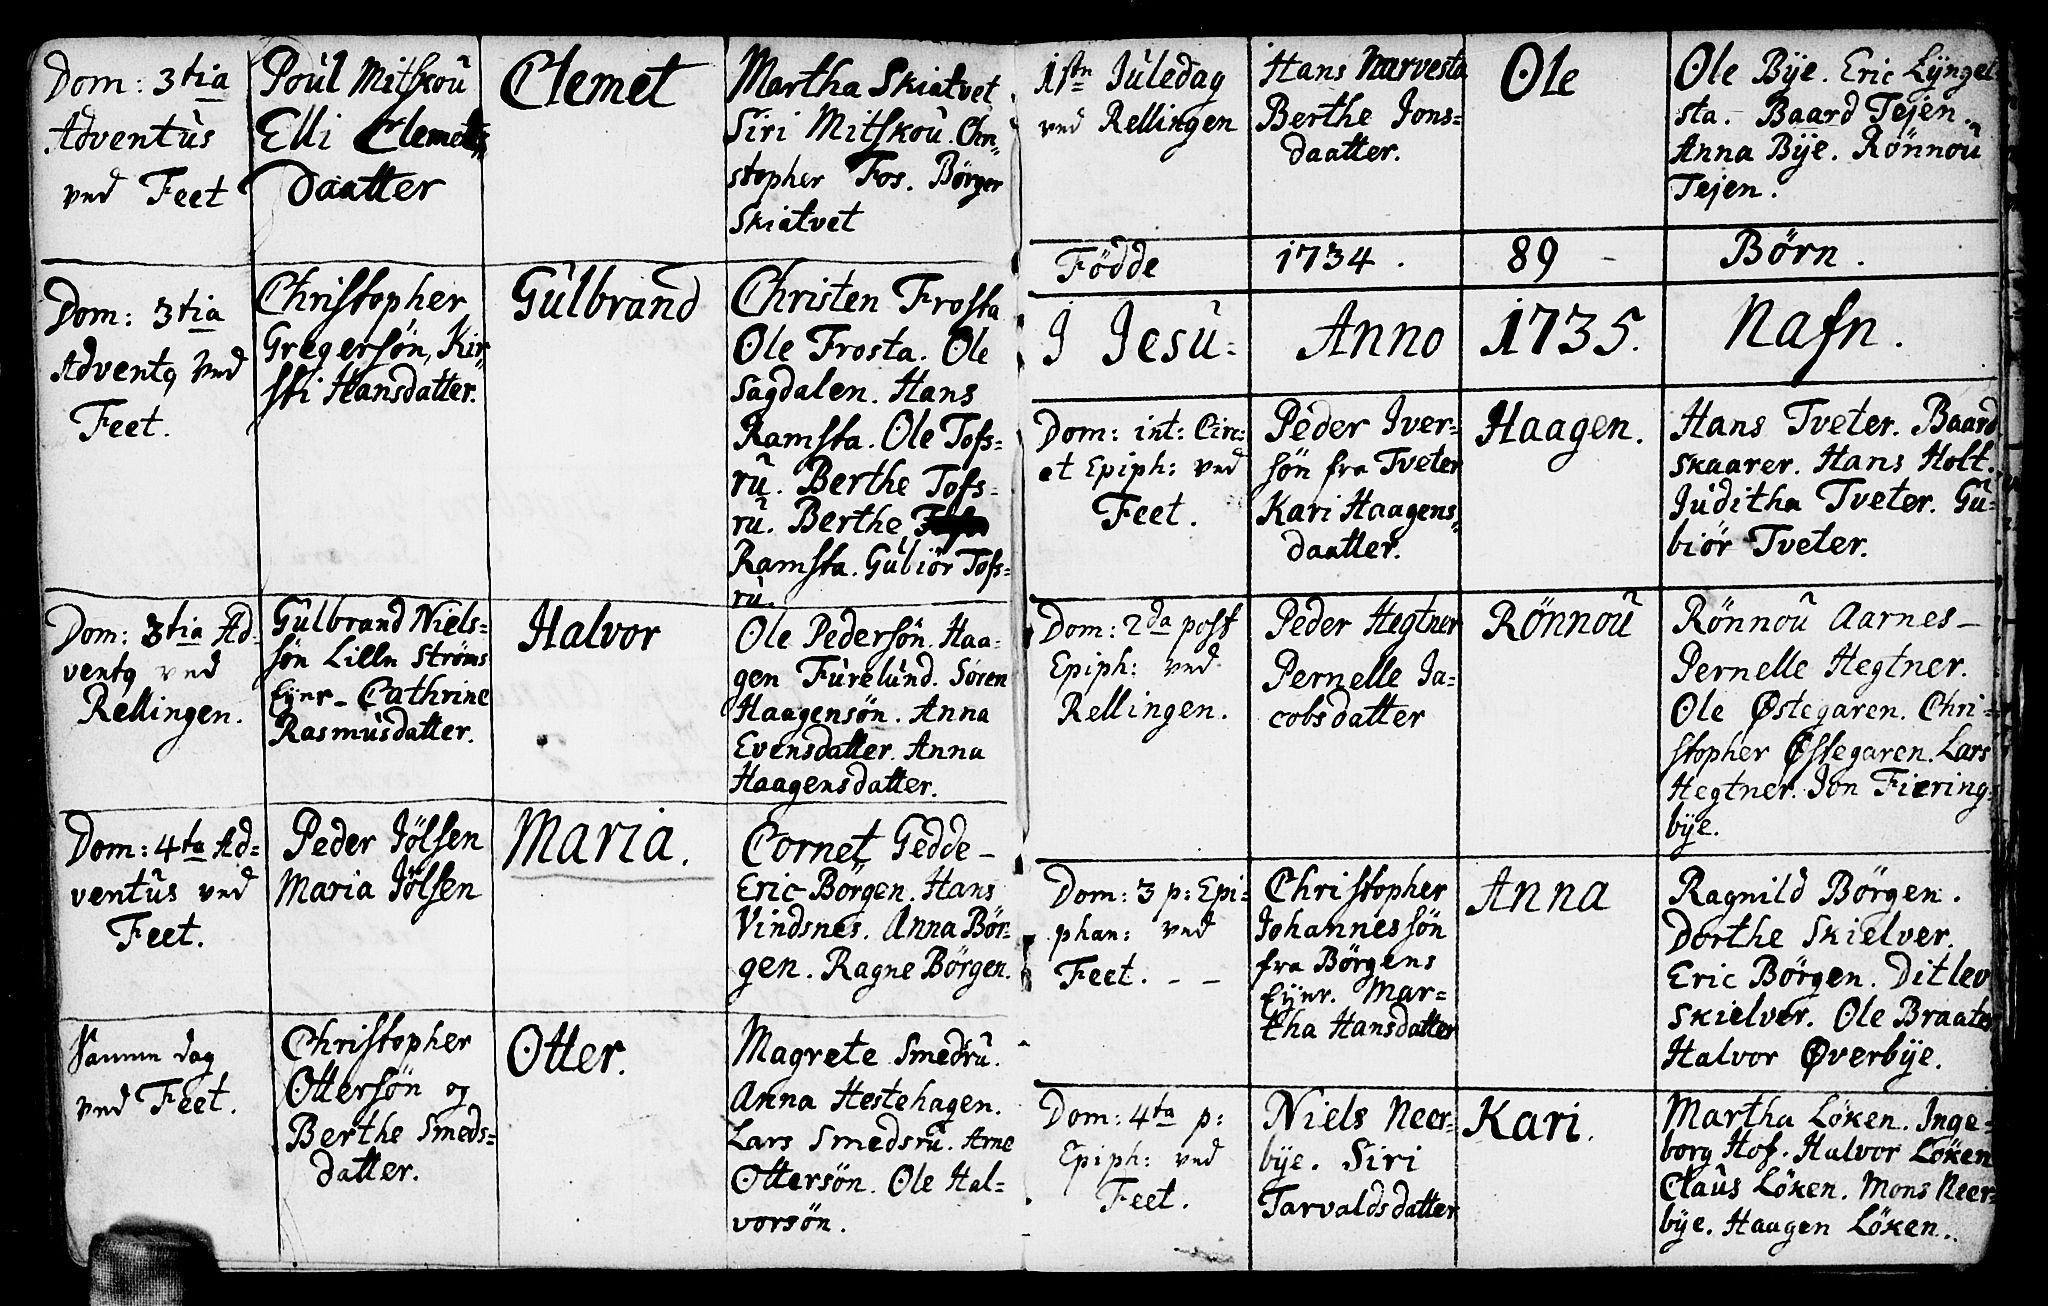 Dom: 3tia
Adventus
ved Feet
Poul Mitskou
Elli Clemets
daatter
Clemet
Martha Skiatvet
Siri Mitskou. Chri-
stopher Fos. Börger
Skiatvet
Dom: 3tia
Adventq ved
Feet.
Christopher
Gregersön, Kir-
sti Hansdatter.
Gulbrand
Christen Frosta
Ole Frosta. Ole
Sagdalen. Hans
Ramsta. Ole Tofs-
ru. Berthe Tofs-
ru. Berthe
Ramsta. Gubiör Tofs-
ru.
Dom: 3tia Ad-
ventq ved
Rellingen.
Gulbrand Niels-
sön Lille Ströms
Eyer – Cathrine
Rasmusdatter.
Halvor
Ole Pedersön. Haa-
gen Furelund. Sören
Haagensön. Anna
Evensdatter. Anna
Haagensdatter.
Dom: 4ta Ad-
ventus ved
Feet.
Peder Jölsen
Maria Jölsen
Maria.
Cornet Gedde –
Eric Börgen. Hans
Vindsnes. Anna Bör-
gen. Ragne Börgen.
Samme dag
ved Feet.
Christopher
Ottersön og
Berthe Smeds-
datter.
Otter.
Magrete Smedsru.
Anna Hestehagen.
Lars Smedsru. Arne
Ottersön. Ole Hal-
vorsön.
1ste Juledag
ved Rellingen
Hans Narvesta
Berthe Jons-
daatter.
Ole
Ole Bye. Eric Lynget
sta. – Baard Tejen.
Anna Bye. Rönnou
Tejen.
Födde 1734. 89 – Börn.
J Jesu- Anno 1735. Nafn.
Dom: int: Circ:
et Epiph: ved
Feet.
Peder Iver-
sön fra Tveter
Kari Haagens-
daatter.
Haagen.
Hans Tveter. Baard
Skaarer. Hans Holt.
Juditha Tveter. Gu-
biör Tveter.
Dom: 2da post
Epiph: ved
Rellingen.
Peder Hegtner
Pernelle Ja-
cobsdatter
Rönnou
Rönnou Aarnes –
Pernelle Hegtner.
Ole Østegaren. Chri-
stopher Østegaren. Lars
Hegtner. Jon Fiering-
bye.
Dom: 3 p: Epi-
phan: ved
Feet. – –
Christopher
Johannessön
fra Börgens
Eyer. Mar-
tha Hansdatter
Anna
Ragnild Börgen.
Dorthe Skielver.
Eric Börgen. Ditlev
Skielver. Ole Braaten
Halvor Øverbye.
Dom: 4ta p:
Epiph: ved
Feet.
Niels Neer-
bye. Siri
Tarvaldsdatter
Kari.
Martha Löken. Inge-
borg Hof. Halvor Löken
Claus Löken. Mons Neer-
bye. Haagen Löken.